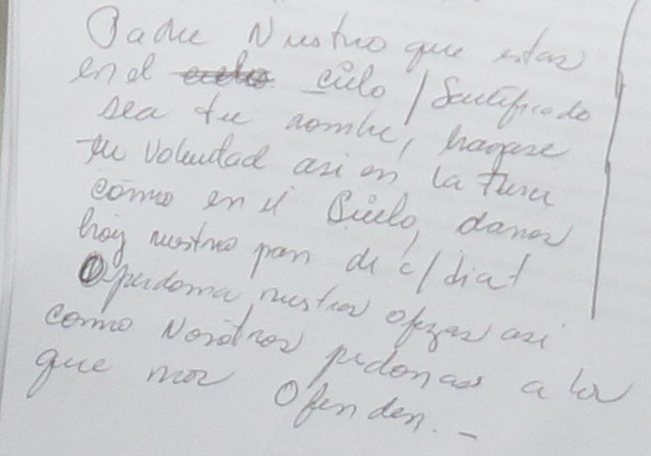 Padre Nuestro que estas
en el cielo / Santificado
sea tu nombre, hagase
tu voluntad asi en la tierra
como en el Cielo, danos
hoy nuestro pan de c/dia
perdona nuestras ofezas asi
como Nosotros pedonas a los
que nos Ofenden. -